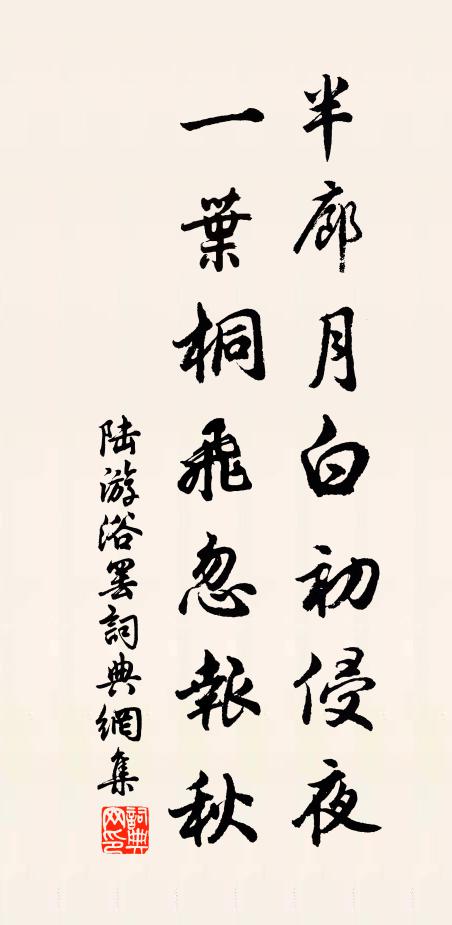 半廊月白初侵夜
一葉桐飛忽報秋
陸游浴罷詞典網集
詞典网印